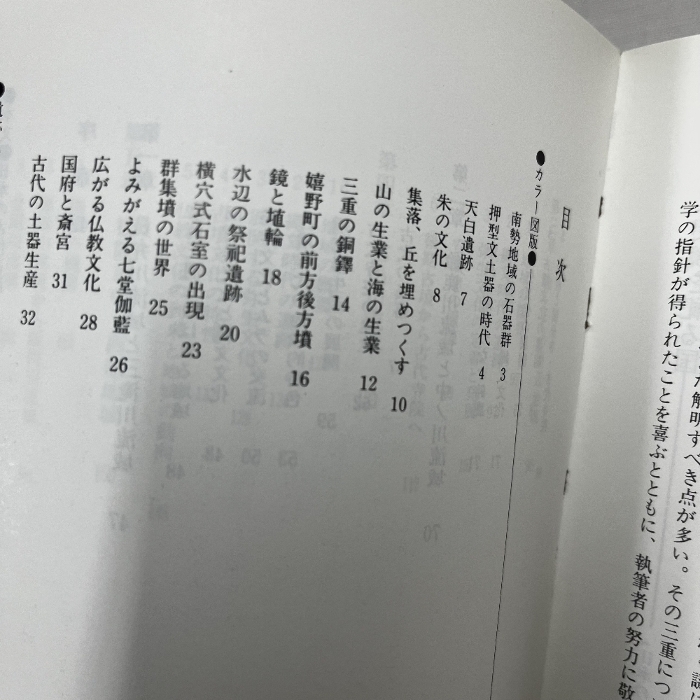 学の指針が得られたことを喜ぶとともに、執筆者の努力に敬
解明すべき点が多い。その三重につ
目次
●カラー図版●
南勢地域の石器群 3
押型文土器の時代 4
天白遺跡 7
朱の文化 8
集落、丘を埋めつくす 10
山の生業と海の生業 12
三重の銅鐸 14
嬉野町の前方後方墳 16
鏡と埴輪 18
水辺の祭祀遺跡 20
横穴式石室の出現 23
群集墳の世界 25
よみがえる七堂伽藍 26
広がる仏教文化 28
国府と斎宮 31
古代の土器生産 32